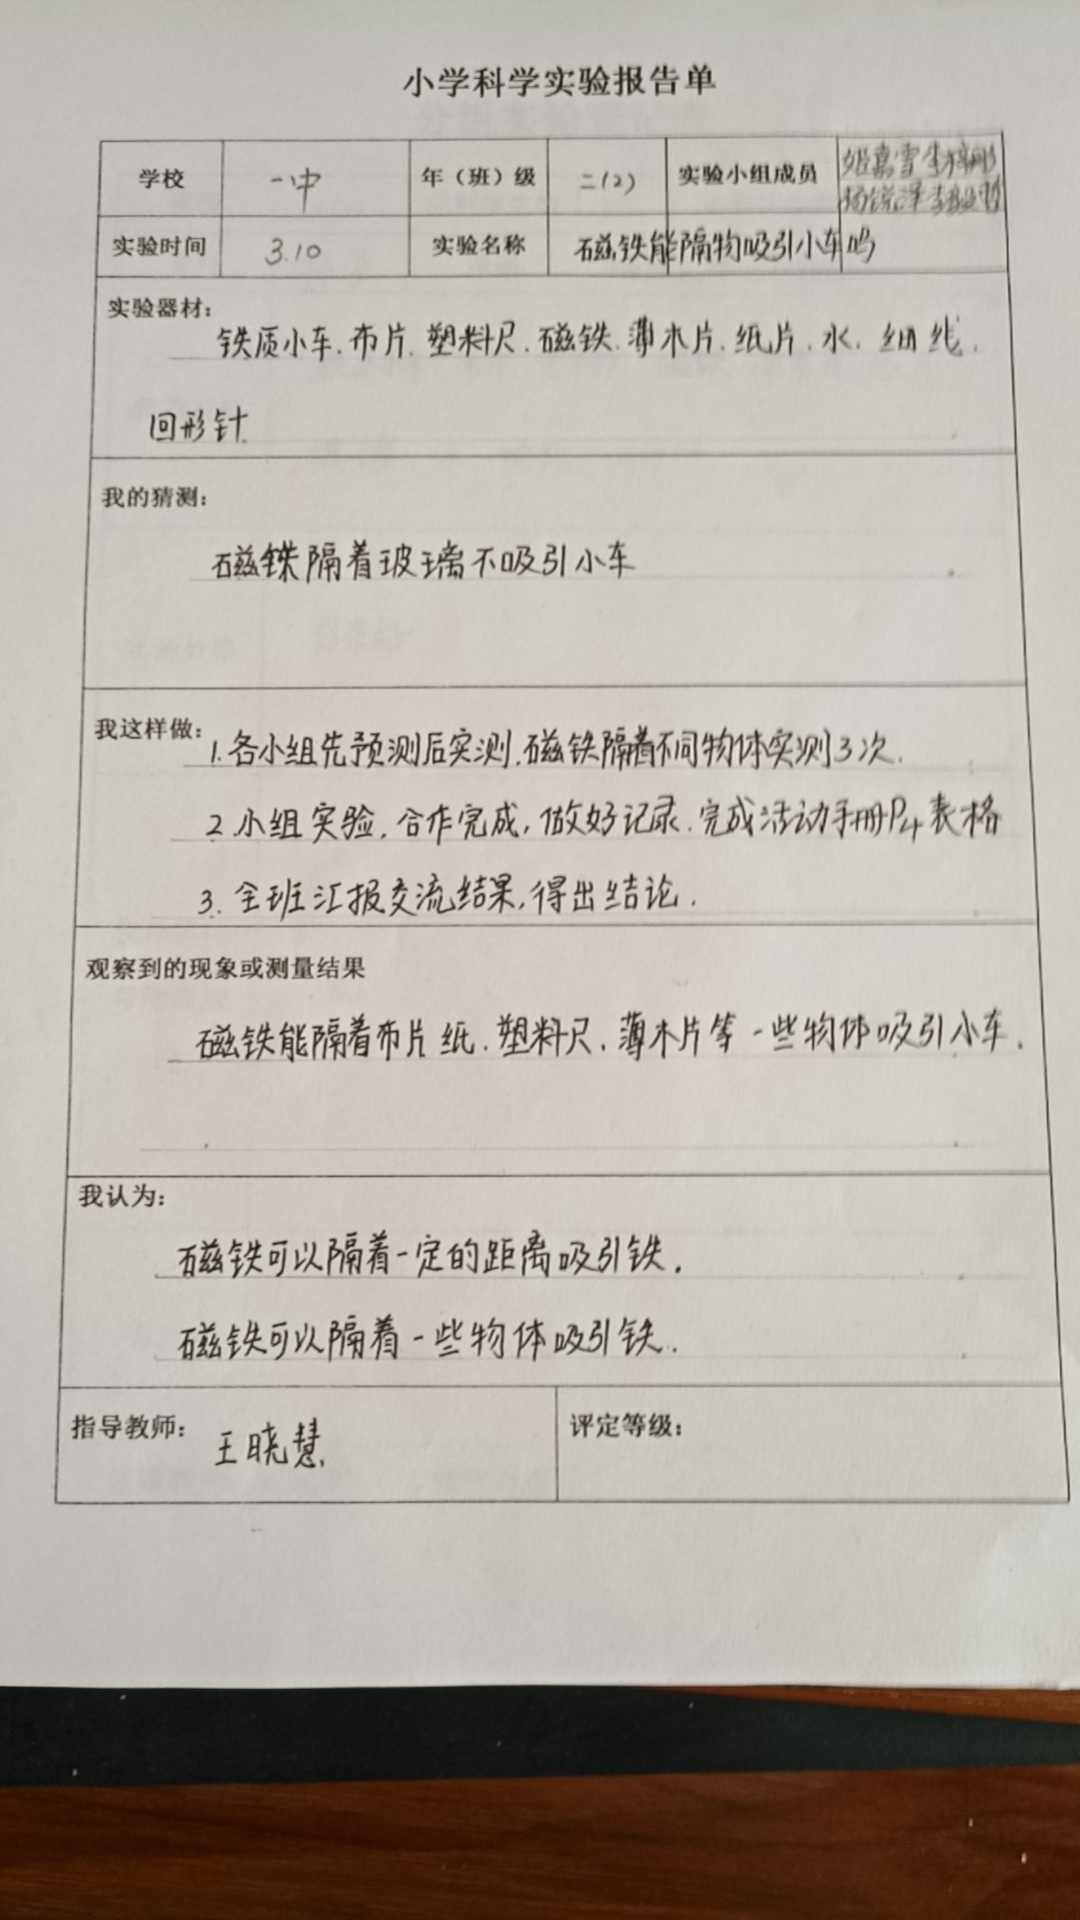 小学科学实验报告单
学校 一中 年（班）级 二(2) 实验小组成员 姬嘉雪
杨锐泽
实验时间 3.10 实验名称 磁铁能隔物吸引小车吗
实验器材:
铁质小车.布片.塑料尺.磁铁.薄木片.纸片.水.细线.
回形针
我的猜测:
磁铁隔着玻璃不吸引小车
我这样做:
1.各小组先预测后实测.磁铁隔着不同物体实测3次.
2.小组实验,合作完成,做好记录.完成活动手册P4表格
3.全班汇报交流结果,得出结论.
观察到的现象或测量结果
磁铁能隔着布片纸.塑料尺.薄木片等一些物体吸引小车.
我认为:
磁铁可以隔着一定的距离吸引铁.
磁铁可以隔着一些物体吸引铁.
指导教师: 王晓慧 评定等级: